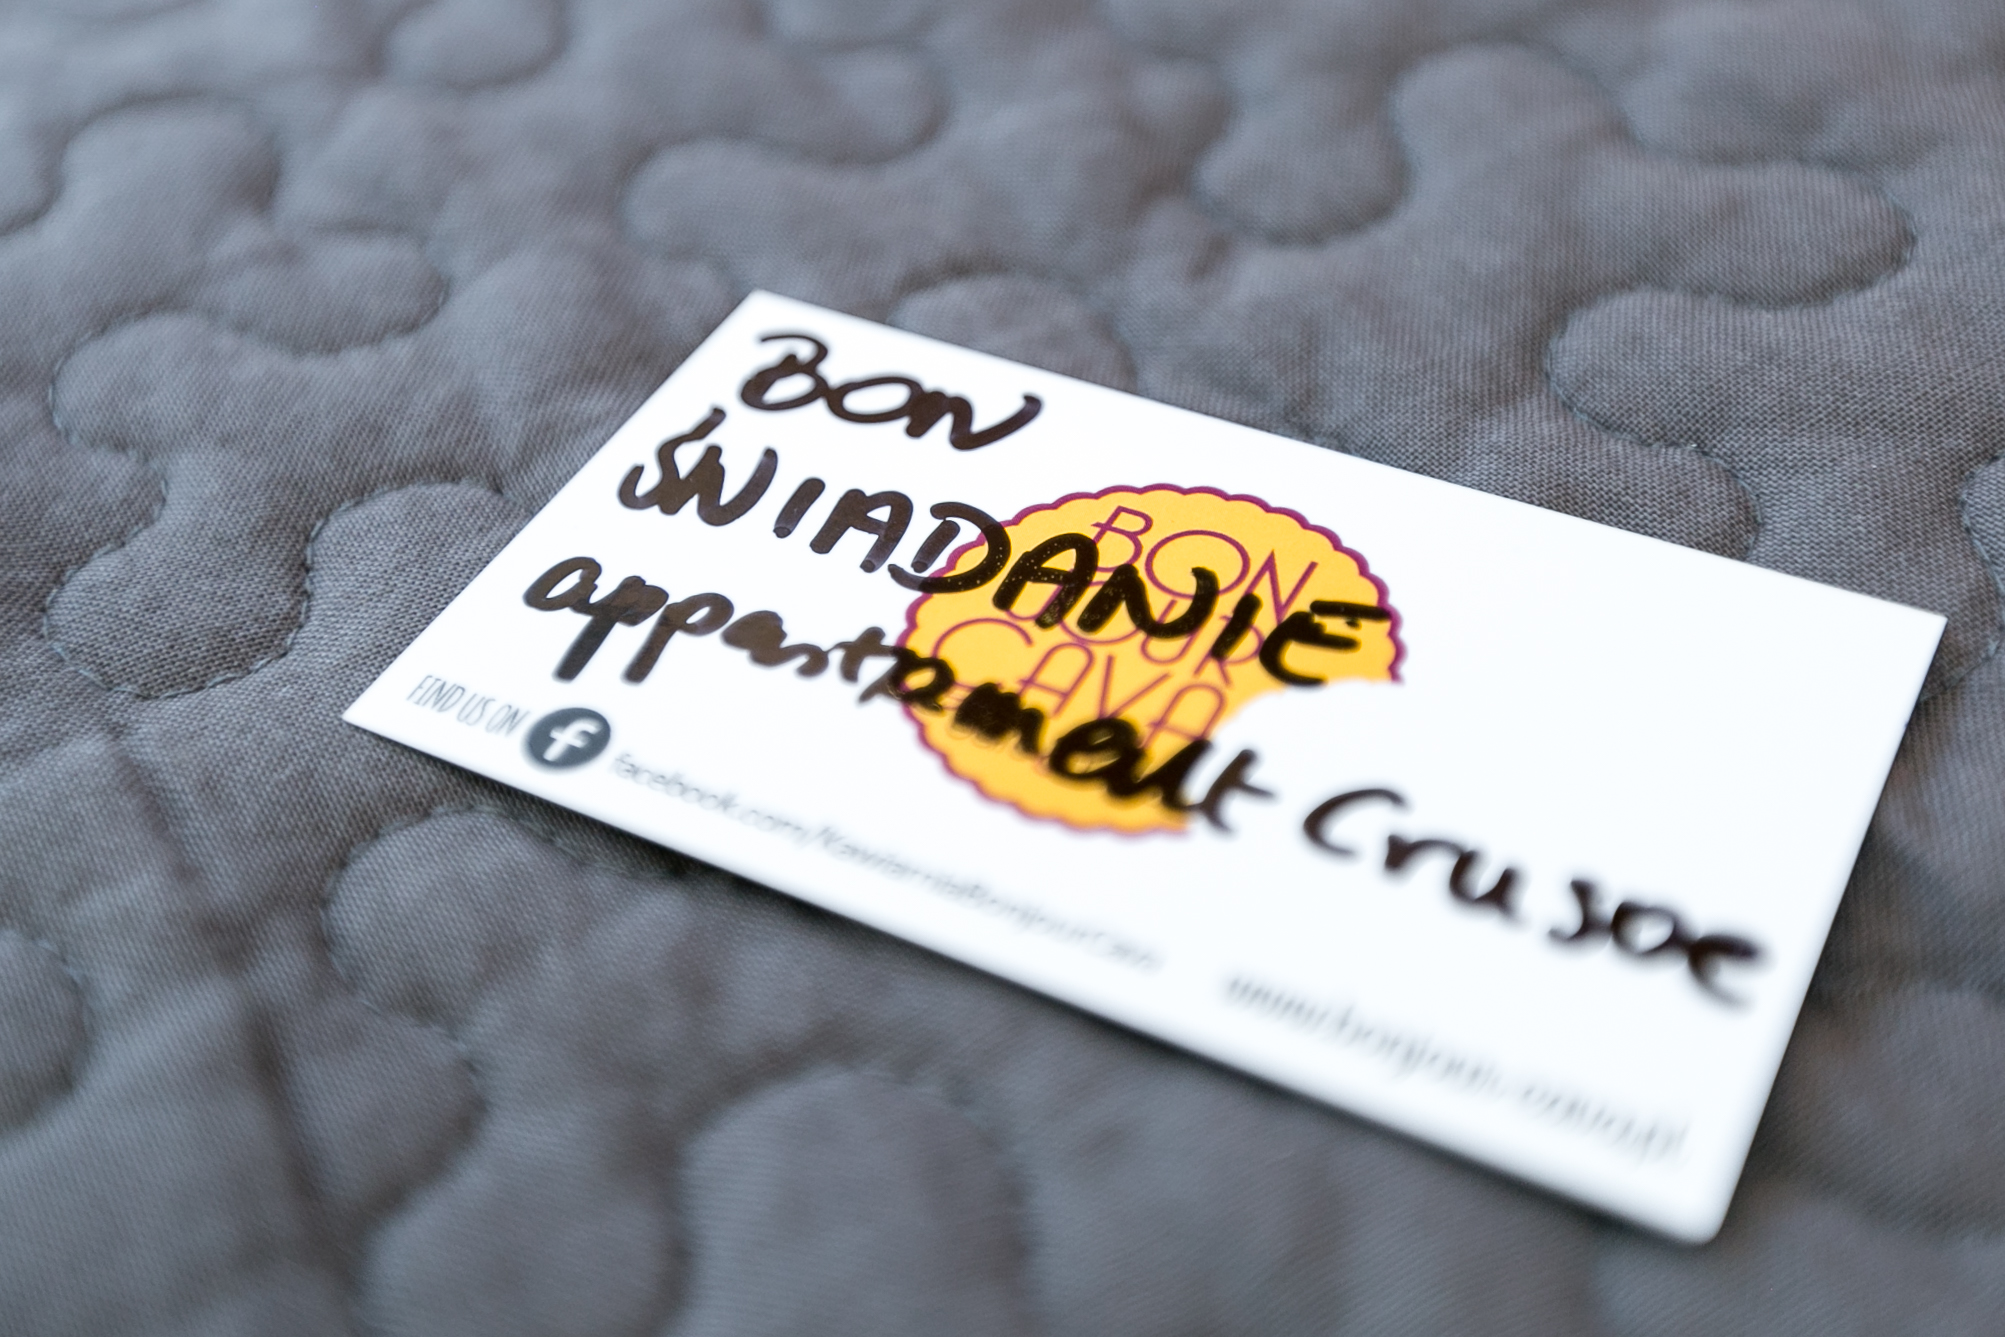 BON
ŚNIADANIE
appartament Crusoe
BON
JOUR
CAVA
FIND US ON
facebook.com/KawiarniaBonjourCava
www.bonjour-cava.pl